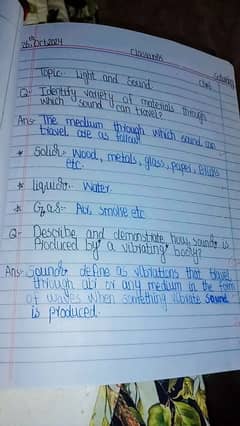 26th Oct 2024
Classwork
Topic. Light and Sound.
Q- Identify variety of materials through
which sound can travel?
Ans- The medium through which sound can
travel are as follows
* Solid:- Wood, metals, glass, paper, Bricks
etc.
* liquid:- Water.
* Gas- Air, smoke etc
Q- Describe and demonstrate how sound is
Produced by a vibrating body?
Ans- Sound define as vibrations that travel
through air or any medium in the form
of waves when something vibrate sound
is produced.